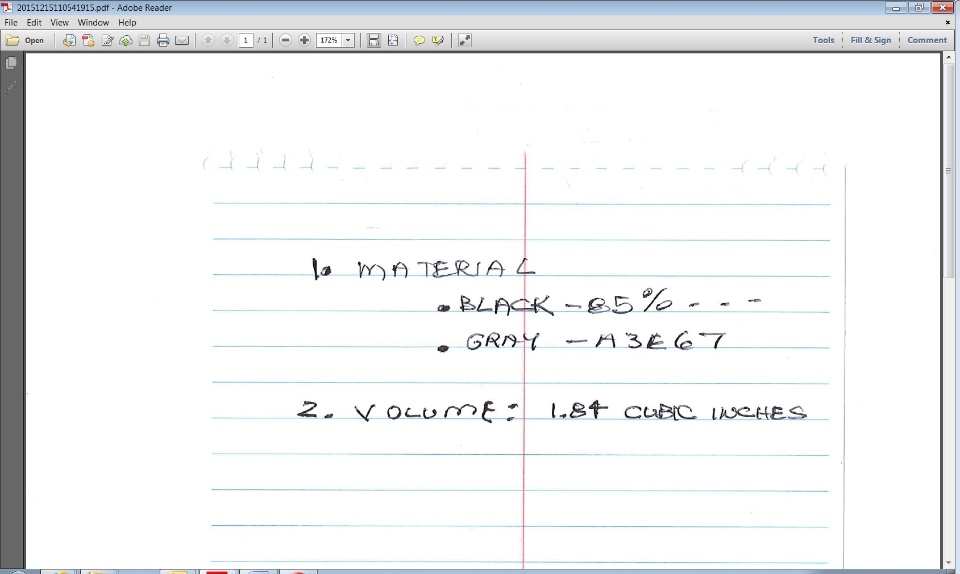 20151215110541915.pdf - Adobe Reader
File Edit View Window Help
Open 1 / 1 172% Tools Fill & Sign Comment
1. MATERIAL
• BLACK - 85% - - -
• GRAY - A3E67
2. VOLUME: 1.84 CUBIC INCHES